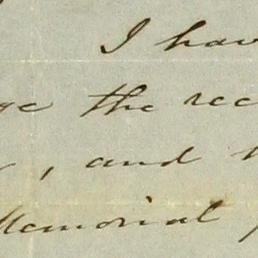 I hav
ge the rec
, and
Memorial